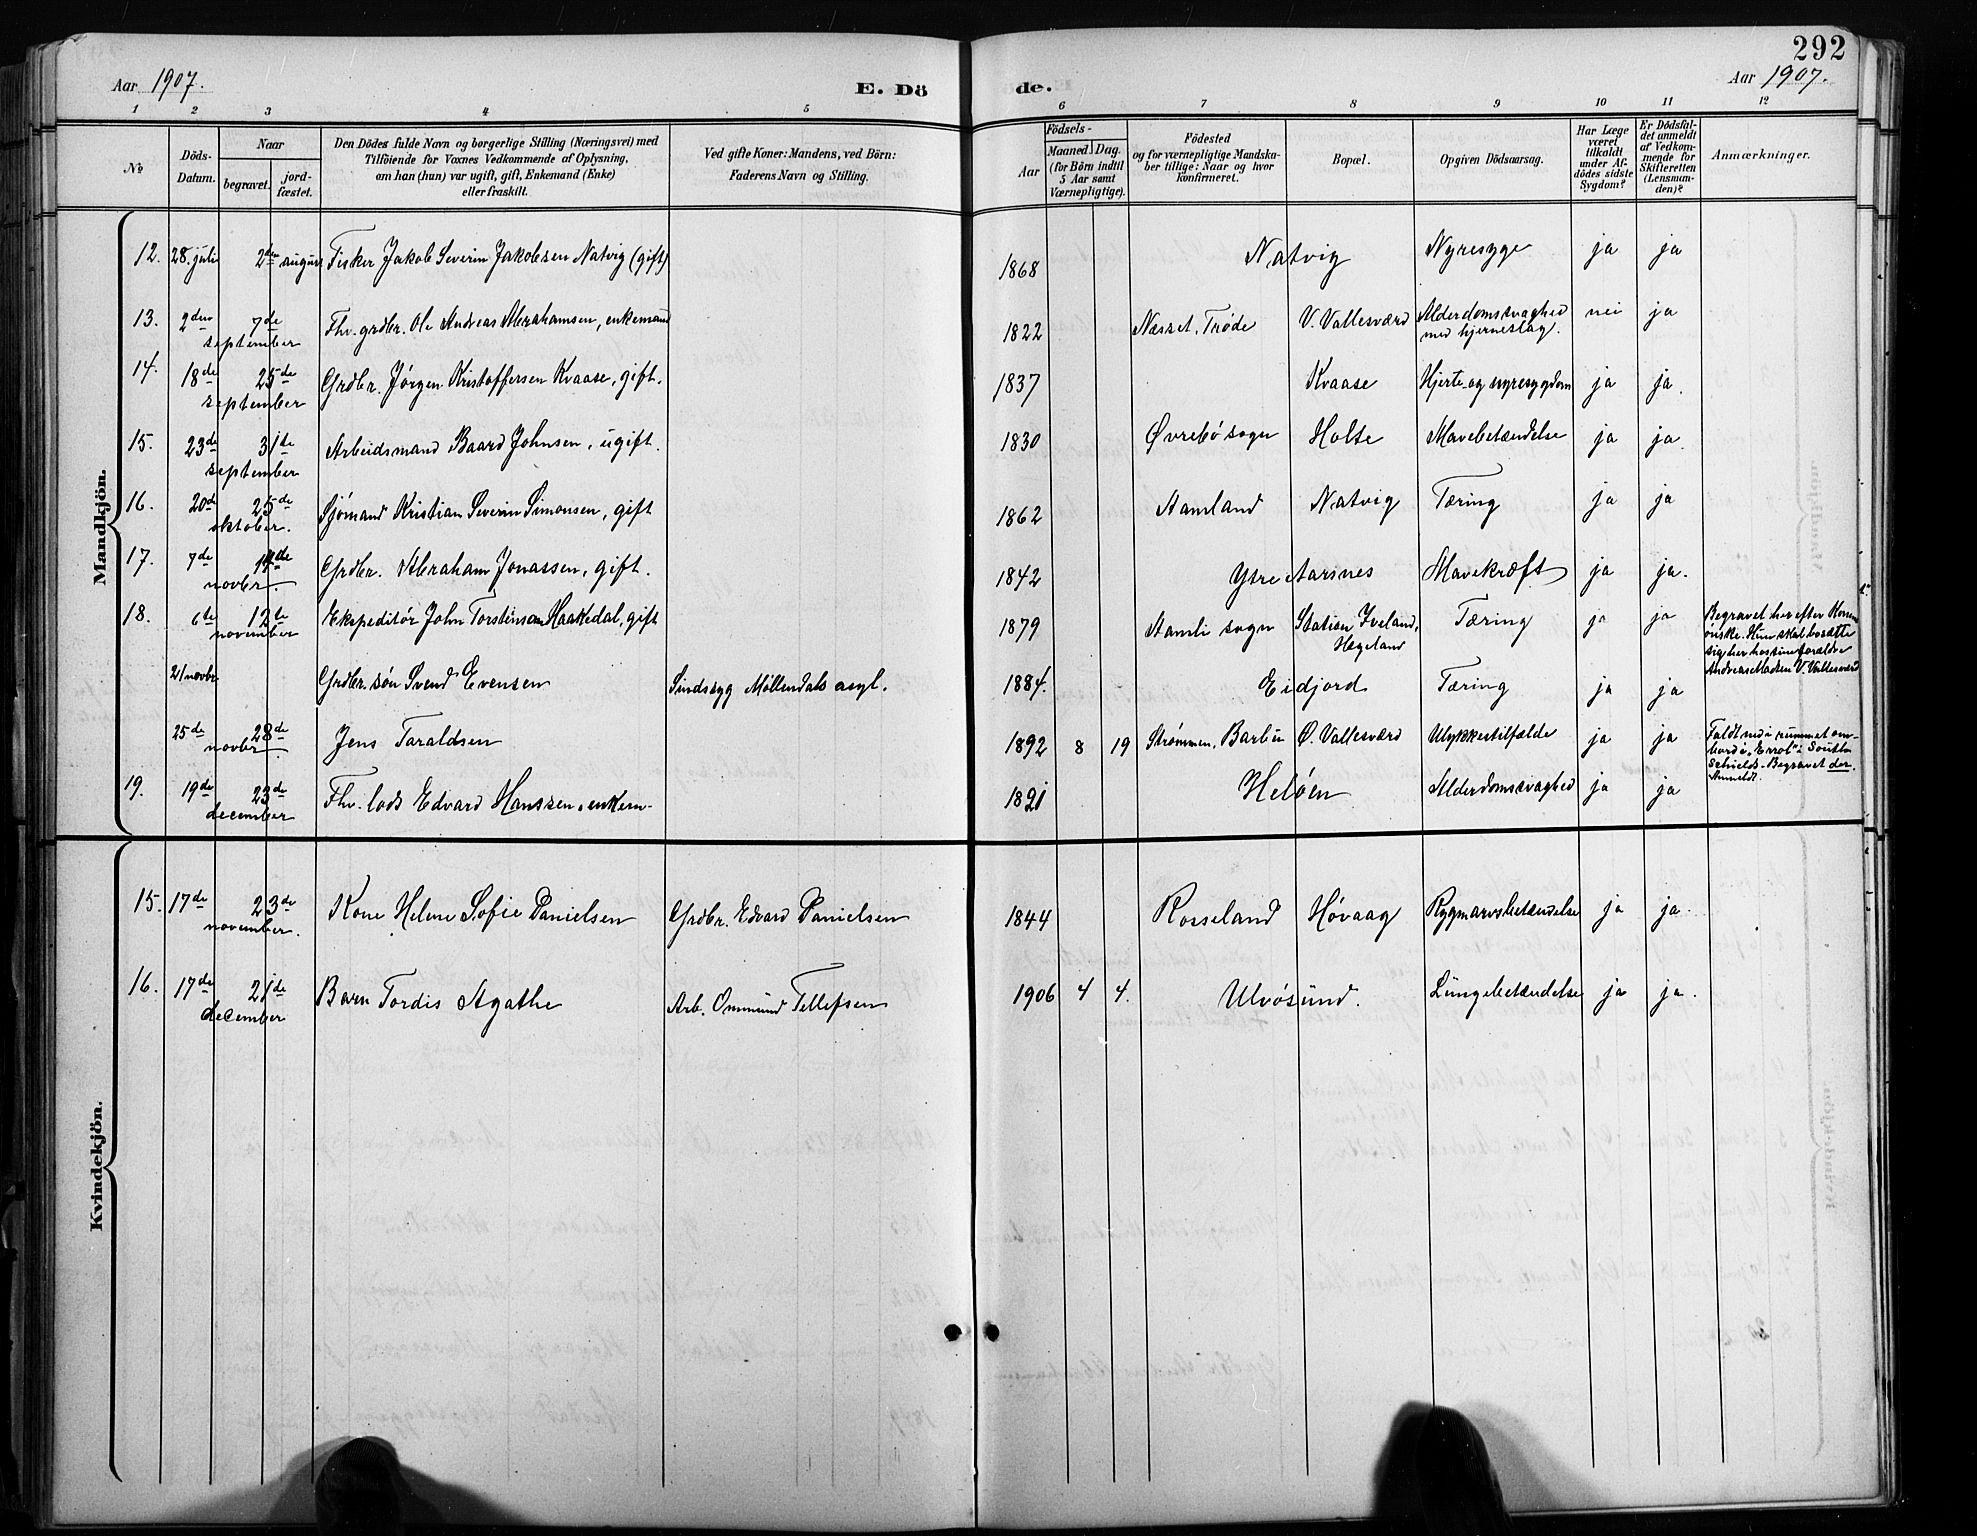 292
Aar 1907. E. Dö de. Aar 1907.
1 2 3 4 5 6 7 8 9 10 11 12
No
Döds-Datum.
Naar
begravet.
jord-fæstet.
Den Dödes fulde Navn og borgerlige Stilling (Næringsvei) med
Tilföiende for Voxnes Vedkommende af Oplysning,
om han (hun) var ugift, gift, Enkemand (Enke)
eller fraskilt.
Ved gifte Koner: Mandens, ved Börn:
Faderens Navn og Stilling.
Födsels-
Aar
Maaned. Dag.
(for Börn indtil
5 Aar samt
Værnepligtige).
Födested
og for værnepligtige Mandska-
ber tillige: Naar og hvor
konfirmeret.
Bopæl.
Opgiven Dödsaarsag.
Har Læge
været
tilkaldt
under Af-
dödes sidste
Sygdom?
Er Dödsfal-
det anmeldt
af Vedkom-
mende for
Skifteretten
(Lensman-
den)?
Anmærkninger.
Mandkjön.
12. 28. juli 2den august Fisker Jakob Severin Jakobsen Natvig (gift) 1868 Natvig Nyresyge ja ja
13. 2den 7de september Fhv. grdbr. Ole Andreas Abrahamsen, enkemand 1822 Næsset, Trøde V. Vallesværd Alderdomssvaghed med hjerneslag. nei ja
14. 18de 25de september Grdbr. Jørgen Kristoffersen Kvaase, gift. 1837 Kvaase Hjerte- og nyresygdom ja ja.
15. 23de 31de september Arbeidsmand Baard Johnsen, ugift. 1830 Øvrebø sogn Holte Mavebetændelse ja ja.
16. 20de 25de oktober. Sjømand Kristian Severin Simonsen, gift 1862 Aamland Natvig Tæring ja ja
17. 7de 14de novbr. Grdbr. Abraham Jonassen, gift. 1842 Ytre Aarsnes Mavekræft ja ja.
18. 6te 12te november Ekspeditør John Torstenson Haakedal, gift 1879 Aamli sogn Station Iveland, Hægeland Tæring ja ja Begravet her efter Konens
ønske. Hun skal bosætte
sig her hos sine forældre
Andreas Madsen V. Vallesværd
21 novbr. Grdbr. søn Svend Evensen Sindssyg Møllendals asyl. 1884. Eidjord Tæring ja ja
25de 28de novbr. Jens Taraldsen 1892 8 19 Strømmen, Barbu Ø. Vallesværd Ulykkestilfælde ja ja Faldt ned i rummet om-
bord i "Errol" i South
Schields. Begravet der.
Anmeldt.
19. 19de 23de december Fhv. lods Edvard Hanssen, enkem. 1821 Heløen Alderdomssvaghed ja ja
Kvindekjön.
15. 17de 23de november. Kone Helene Sofie Danielsen Grdbr. Edvard Danielsen 1844 Rosseland Høvaag Rygmarvsbetændelse ja ja.
16. 17de 21de december Barn Tordis Agathe Arb. Ommund Tellefsen 1906 4 4. Ulvøsund. Lungebetændelse ja ja.